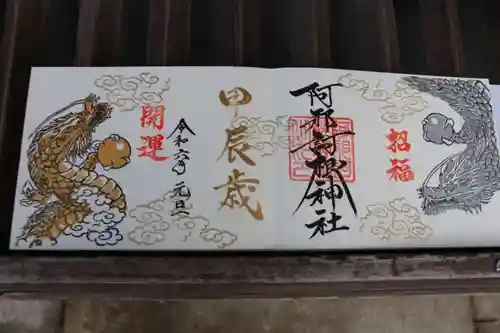 招福
阿邪訶根神社
甲辰歳
令和六年元旦
開運